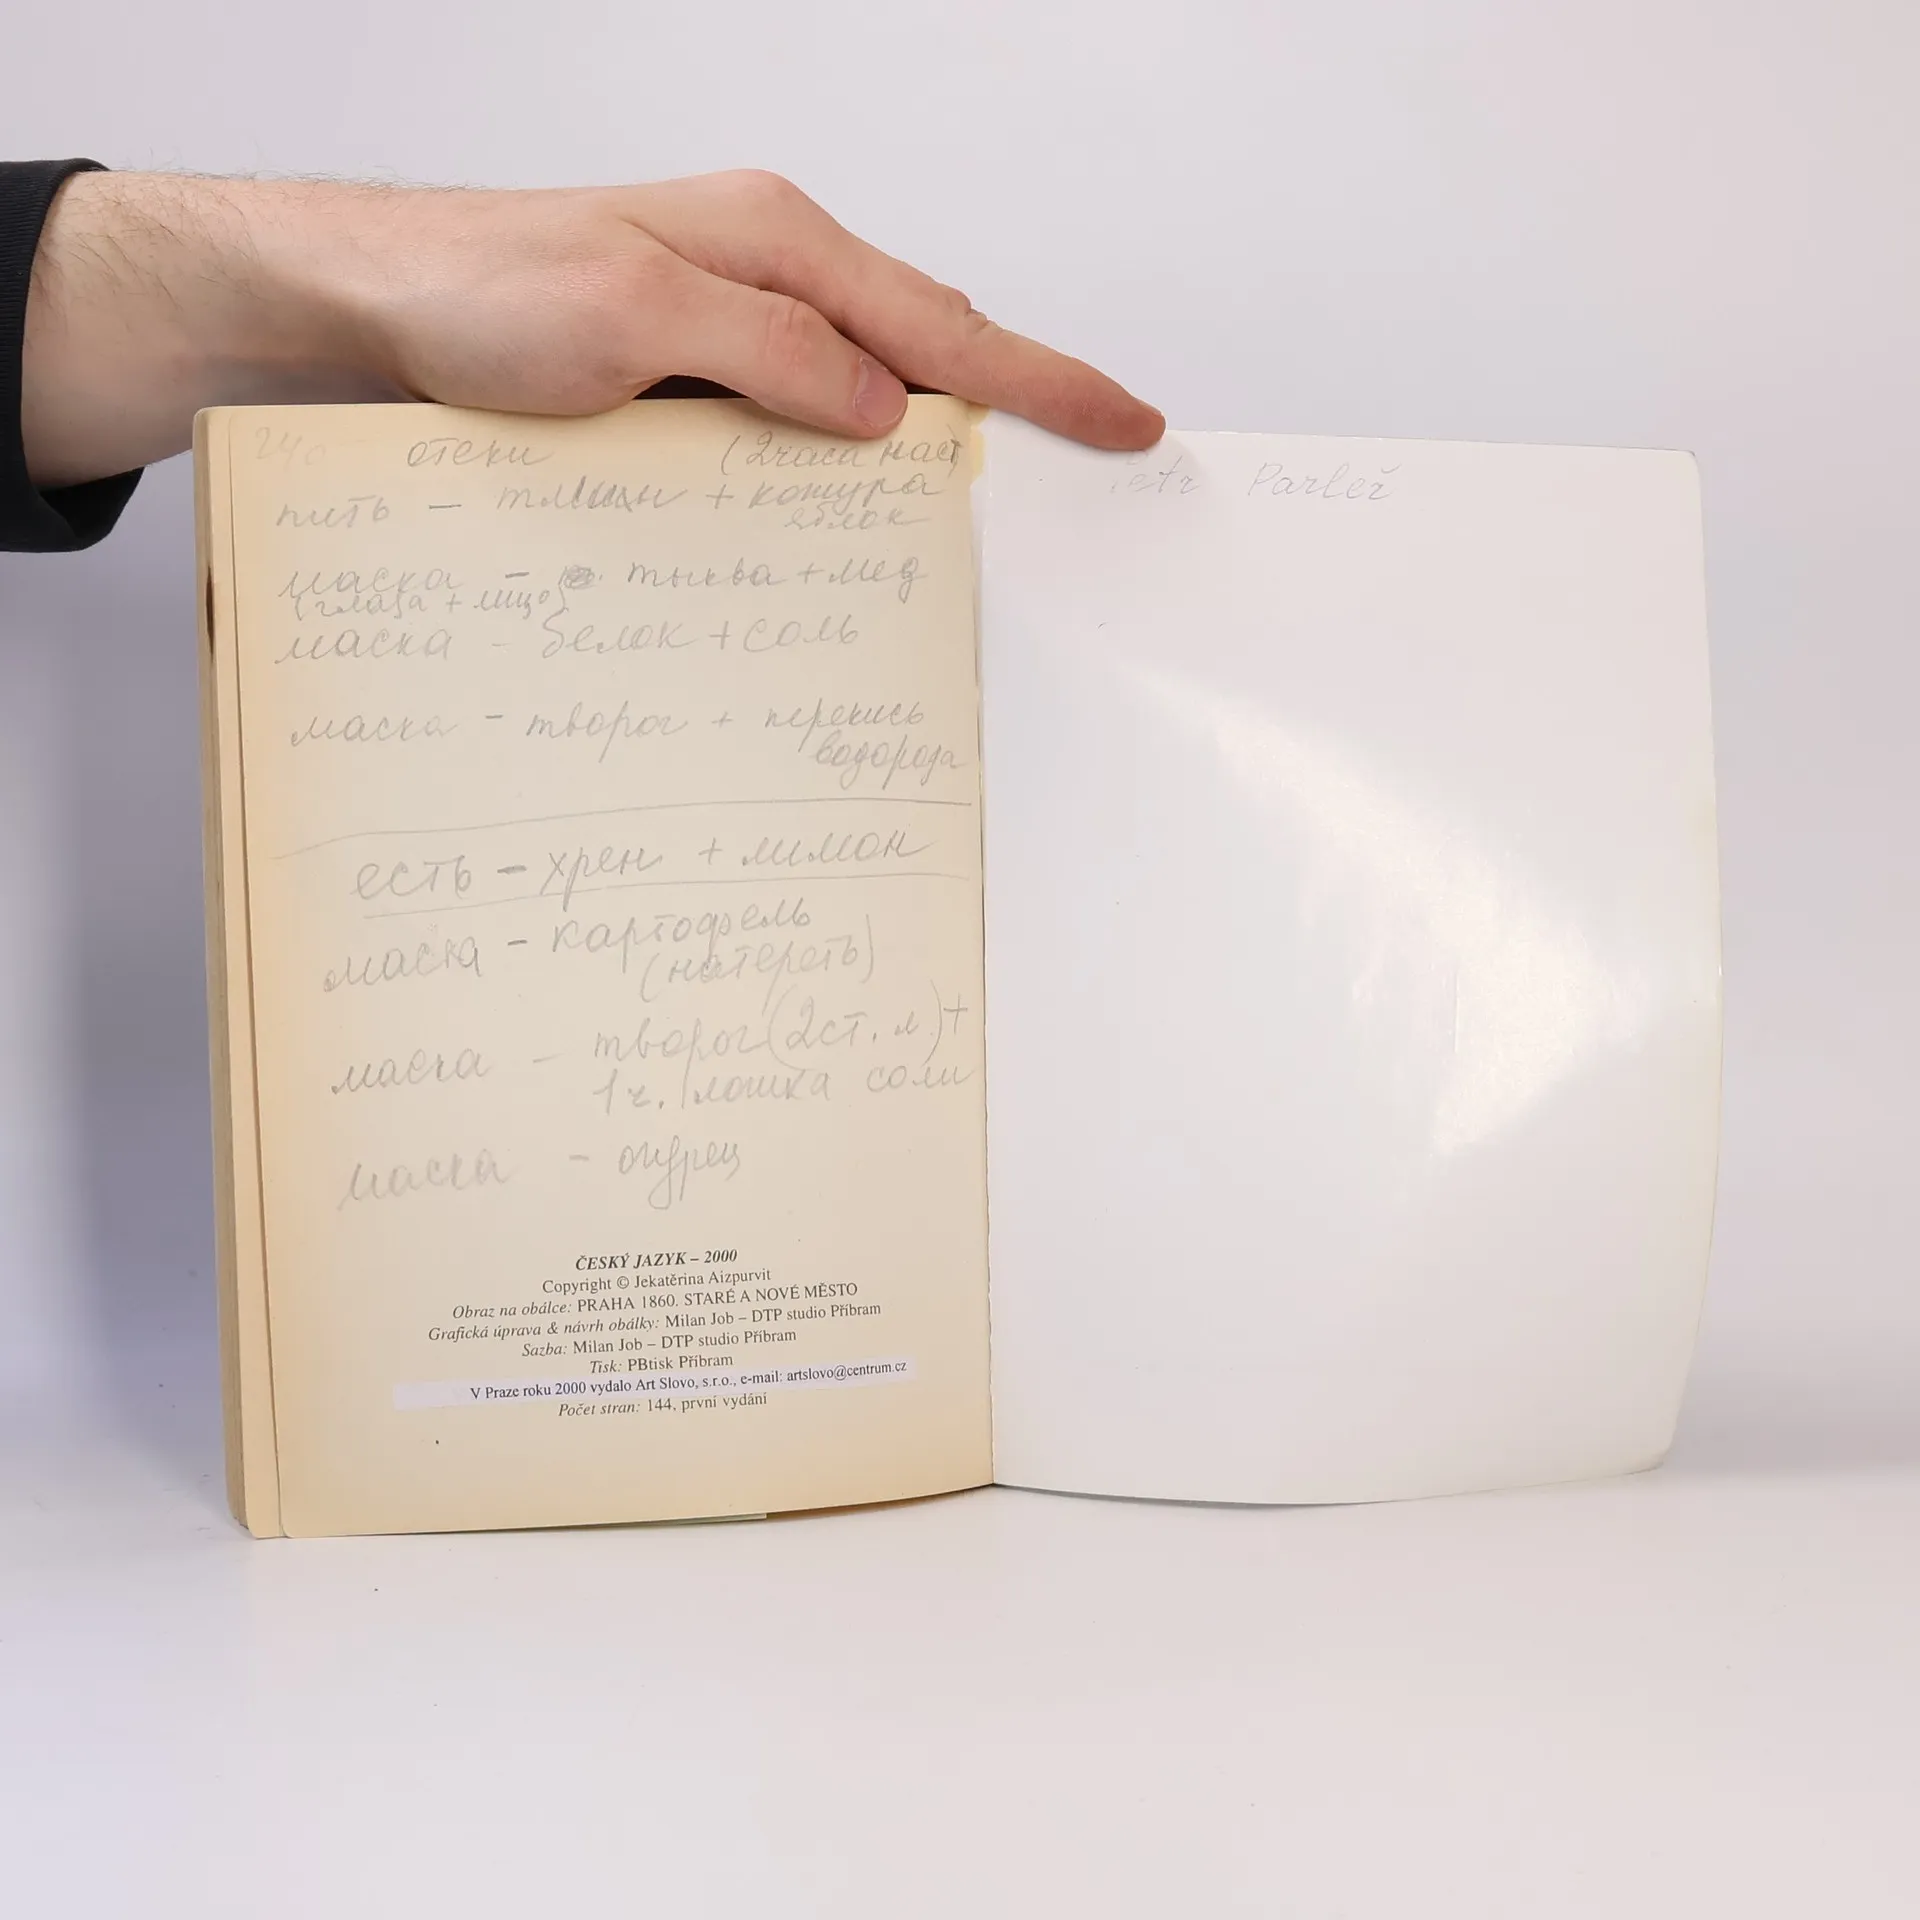 240
отеки (2 часа наст)
пить – тмин + кожура
яблок
маска – тыква + мед
(глаза + лицо)
маска – белок + соль
маска – творог + перекись
водорода
есть – хрен + лимон
маска – картофель
(натереть)
маска – творог (2 ст. л.) +
1 ч. ложка соли
маска – огурец
ČESKÝ JAZYK – 2000
Copyright © Jekatěrina Aizpurvit
Obraz na obálce: PRAHA 1860. STARÉ A NOVÉ MĚSTO
Grafická úprava & návrh obálky: Milan Job – DTP studio Příbram
Sazba: Milan Job – DTP studio Příbram
Tisk: PBtisk Příbram
V Praze roku 2000 vydalo Art Slovo, s.r.o., e-mail: artslovo@centrum.cz
Počet stran: 144, první vydání
Petr Parleř